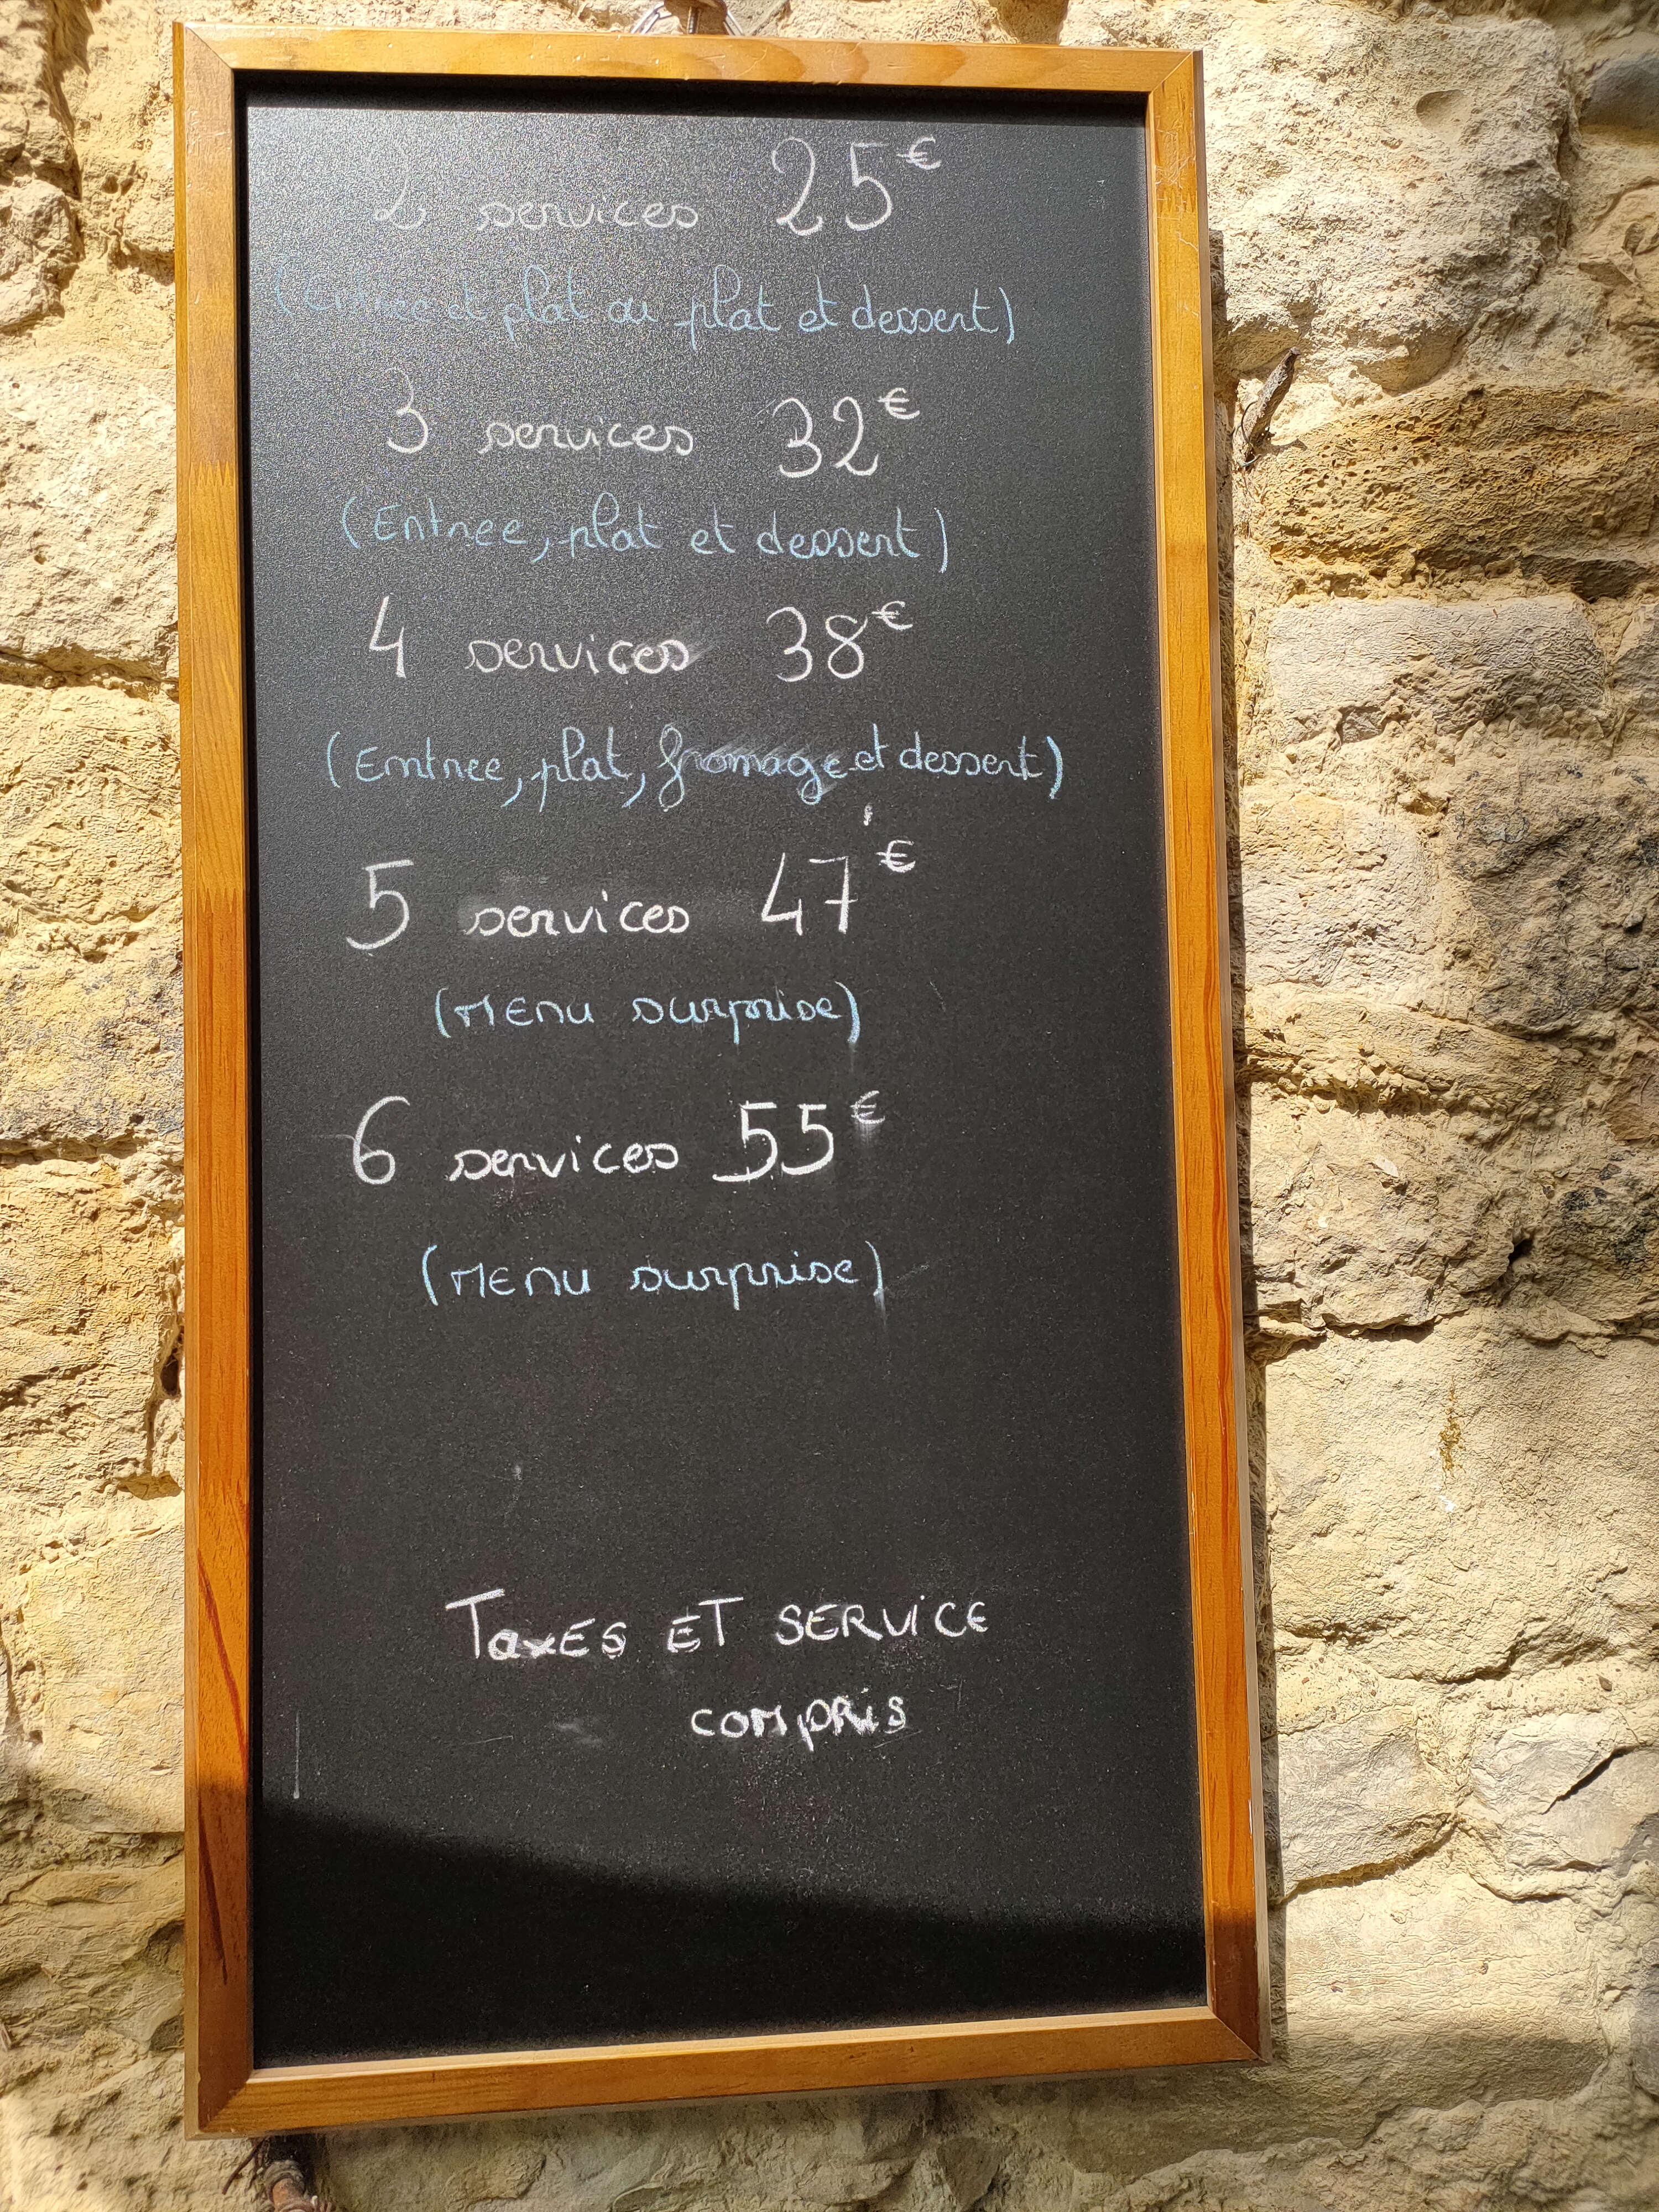 2 services 25€
(Entree et plat ou plat et dessert)
3 services 32€
(Entree, plat et dessert)
4 services 38€
(Entree, plat, fromage et dessert)
5 services 47€
(MENU surprise)
6 services 55€
(MENU surprise)
TaxES ET SERVICE
COMPRIS